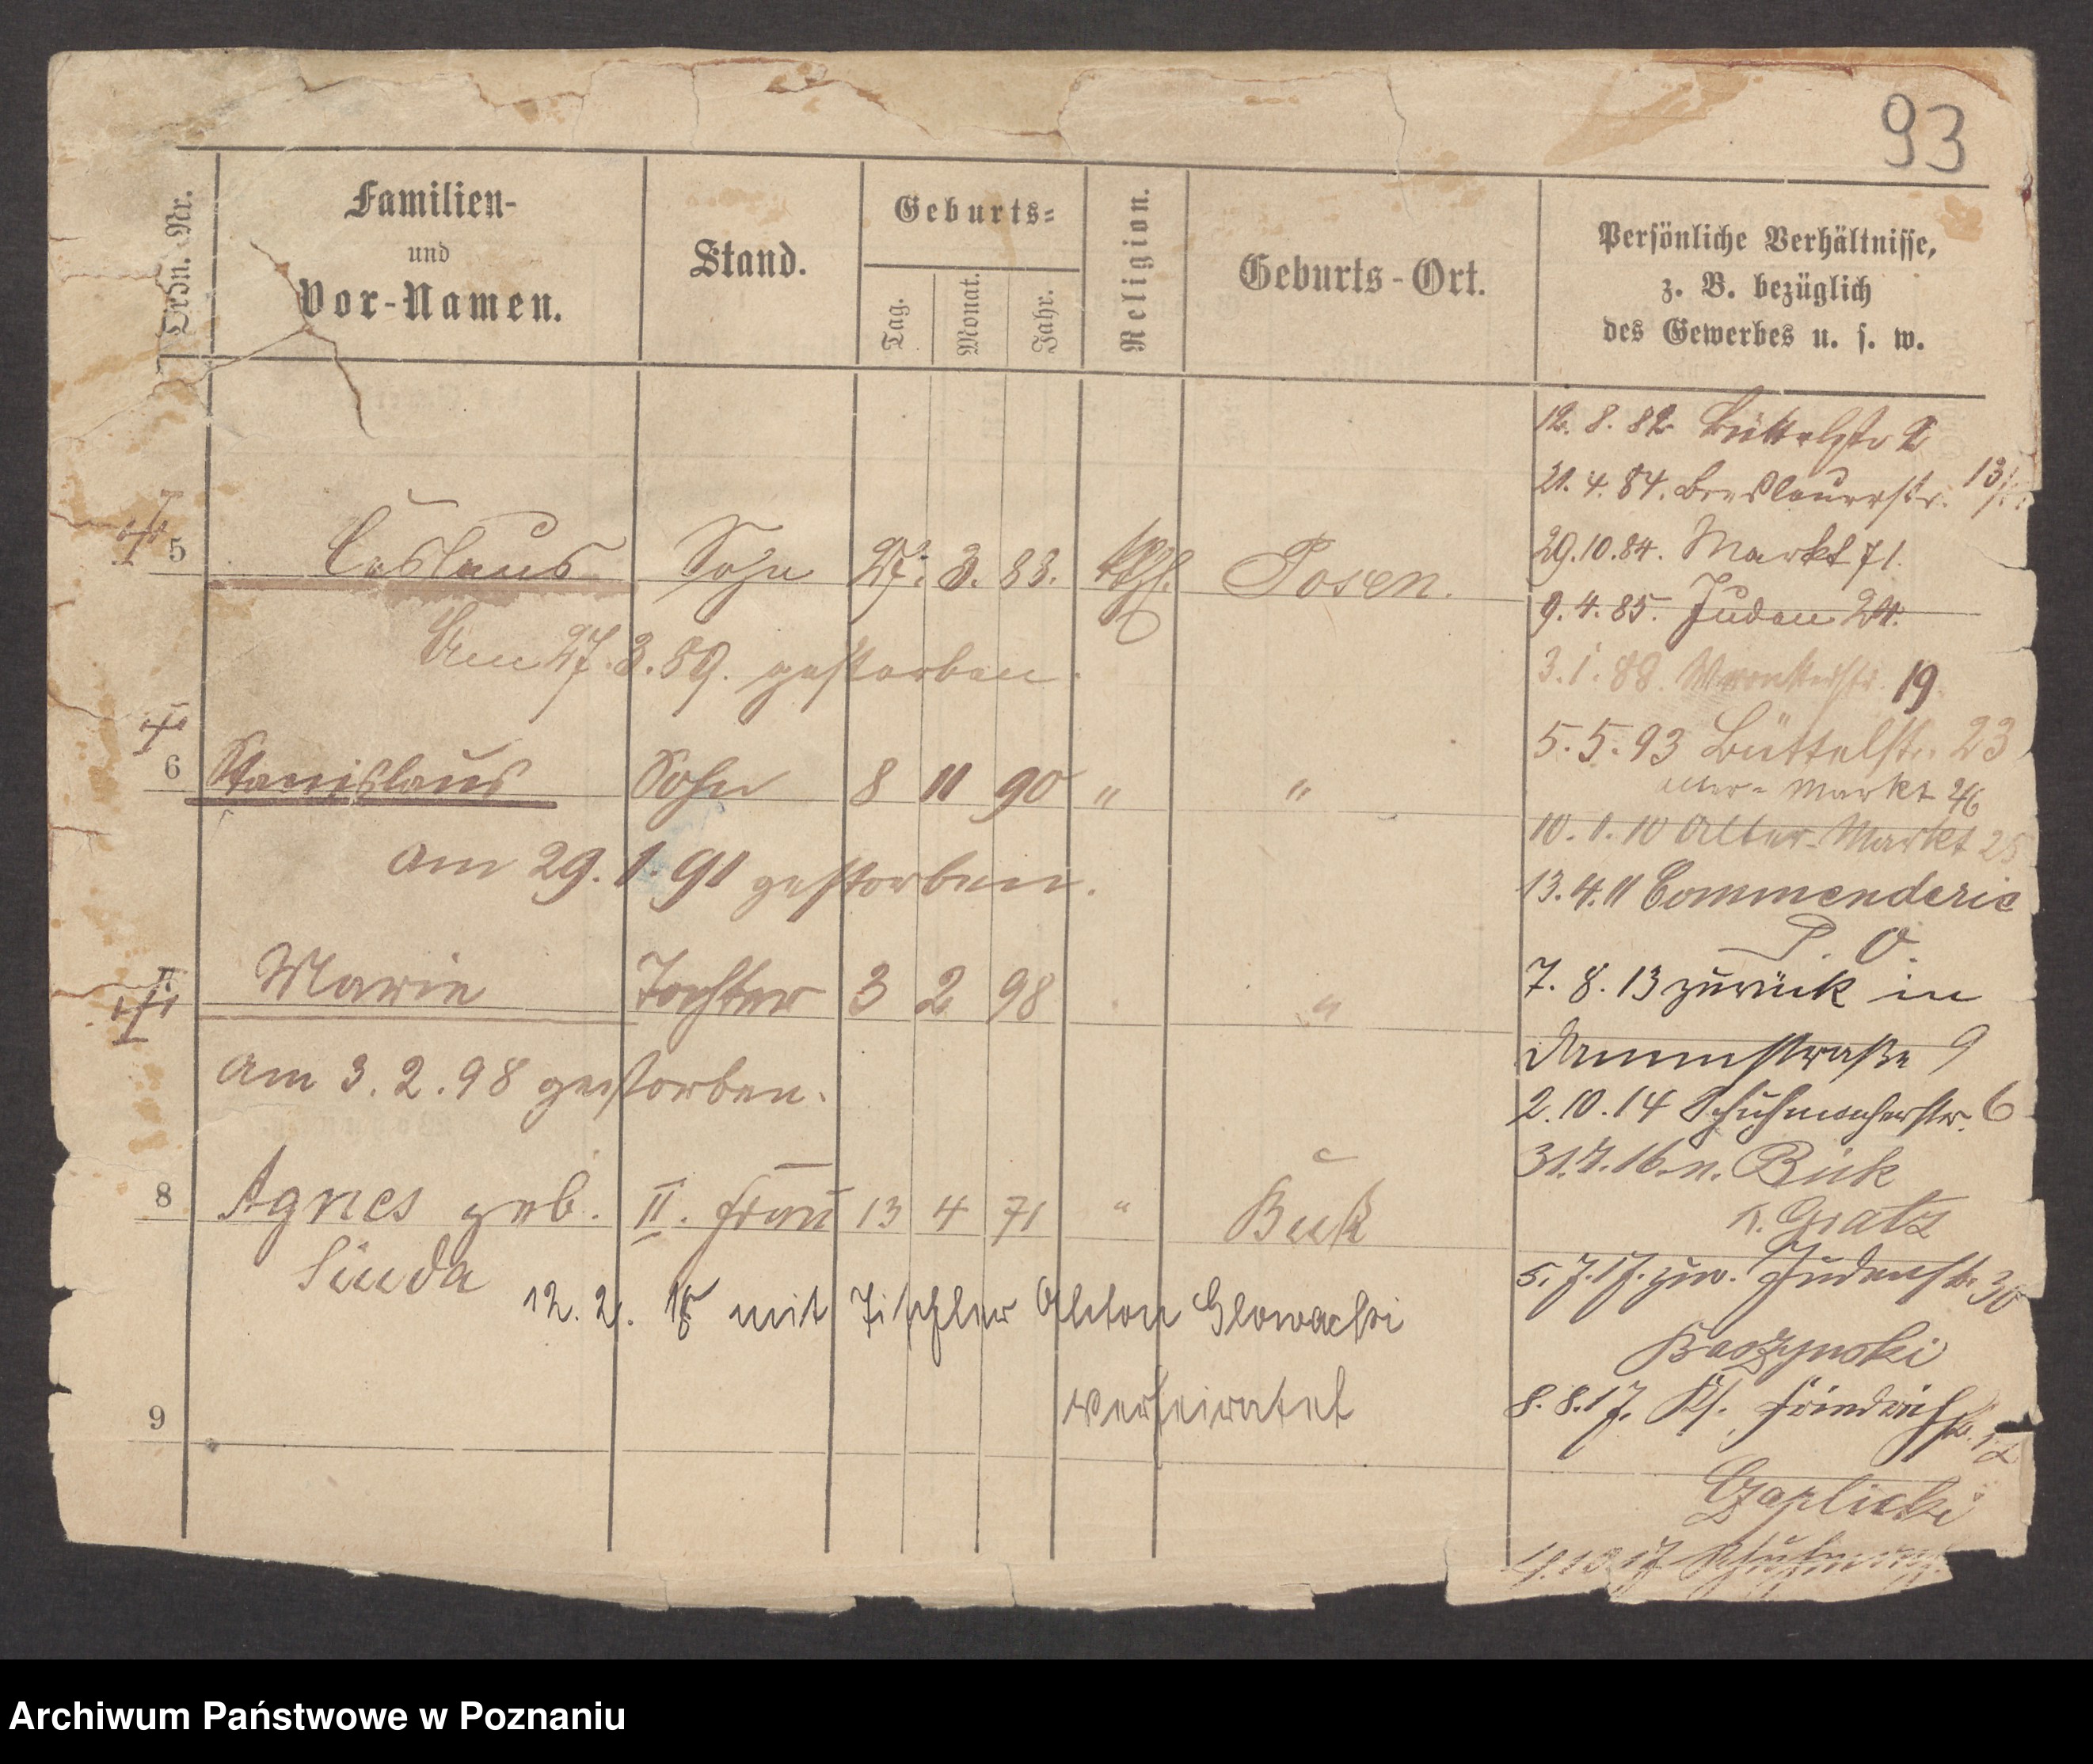 93
Ordn. Nr.
Familien-
und
Vor-Namen.
Stand.
Geburts-
Tag.
Monat.
Jahr.
Religion.
Geburts-Ort.
Persönliche Verhältnisse,
z. B. bezüglich
des Gewerbes u. s. w.
5 Ceslaus Sohn 27. 3. 83. kth. Posen.
Am 27. 3. 89. gestorben.
6 Stanislaus Sohn 8 11 90 " "
am 29. 1. 91 gestorben.
Marie Tochter 3 2 98 "
am 3. 2. 98 gestorben.
8 Agnes geb. II. Frau 13 4 71 " Buk
Sinda
12. 2. 18 mit Tischler Anton Glowacki
verheiratet
9
12. 8. 82 Büttelstr
21. 4. 84. Breslauerstr. 13/
29. 10. 84. Markt 71.
9. 4. 85. Juden 24.
3. 1. 88. Wronkerstr. 19
5. 5. 93 Büttelstr. 23
Alter-Markt 26
10. 1. 10 Alter-Markt 25
13. 4. 11 Commenderie
P. O.
7. 8. 13 zurück in
Dammstraße 9
2. 10. 14 Schuhmacherstr. 6
31. 7. 16. n. Buk
K. Grätz
5. 7. 17. zur. Judenstr. 30
Baszynski
8. 8. 17. Ks. Friedrichstr. 12
Czaplicki
10. 17
Archiwum Państwowe w Poznaniu